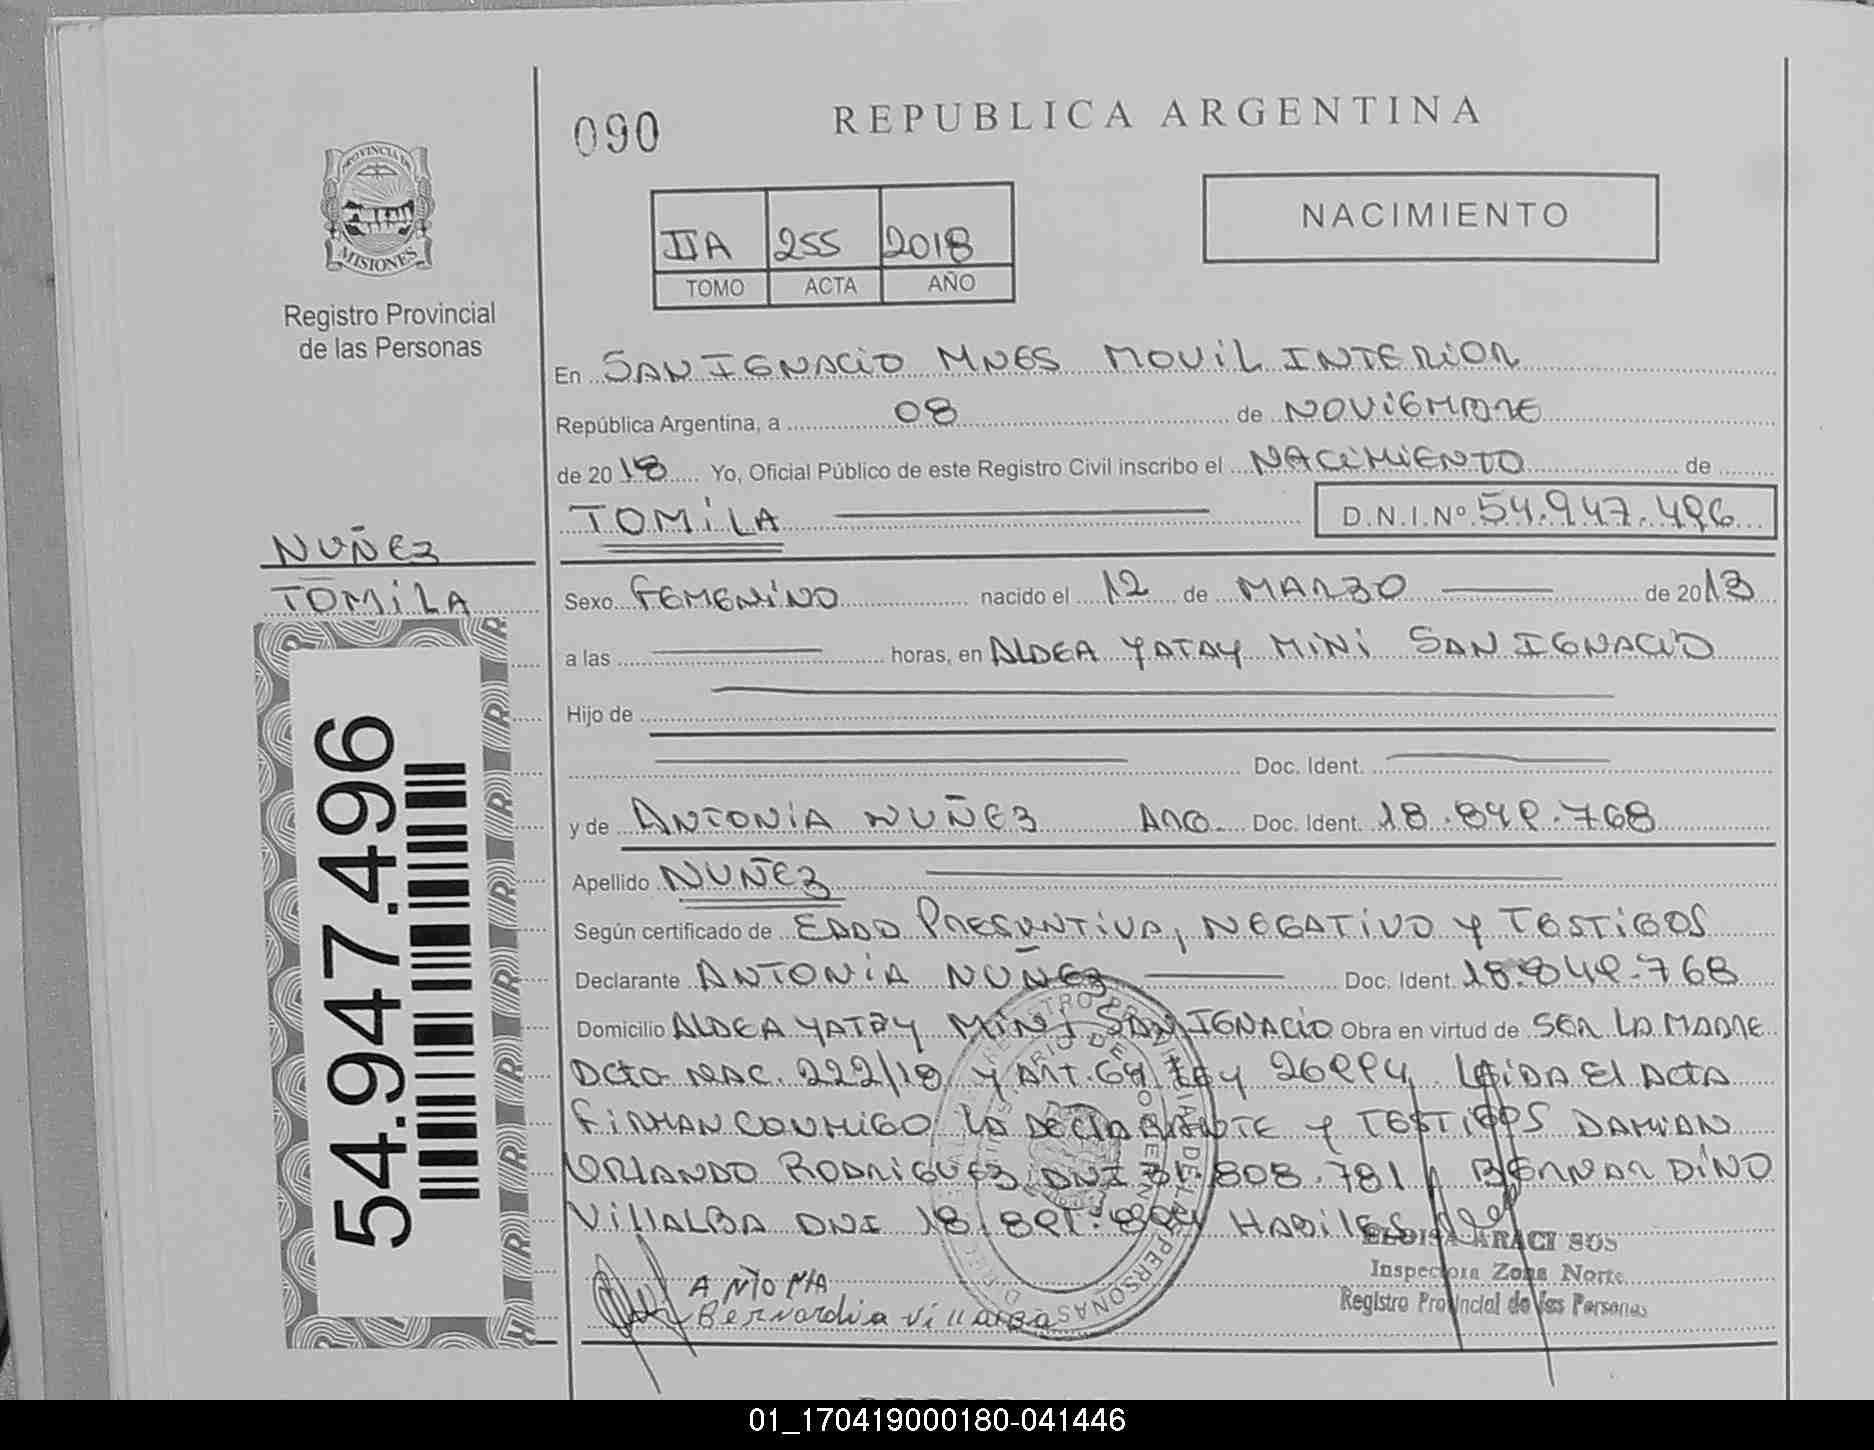 090
REPUBLICA ARGENTINA
PROVINCIA DE
MISIONES
Registro Provincial
de las Personas
IIA 255 2018
TOMO ACTA AÑO
NACIMIENTO
En SAN IGNACIO MNES MOVIL INTERIOR
República Argentina, a 08 de NOVIEMBRE
de 2018 Yo, Oficial Público de este Registro Civil inscribo el NACIMIENTO de
TOMILA D.N.I.Nº 54.947.496
NUÑEZ
TOMILA
Sexo FEMENINO nacido el 12 de MARZO de 2013
a las horas, en ALDEA YATAY MINI SAN IGNACIO
Hijo de
Doc. Ident.
y de ANTONIA NUÑEZ ARG. Doc. Ident. 18.849.768
Apellido NUÑEZ
Según certificado de EDAD PRESUNTIVA, NEGATIVO Y TESTIGOS
Declarante ANTONIA NUÑEZ Doc. Ident. 18.849.768
Domicilio ALDEA YATAY MINI SAN IGNACIO Obra en virtud de SER LA MADRE
DCTO NAC. 222/18 Y ART. 64 LEY 26994, LEIDA El ACTA
FIRMAN CONMIGO LA DECLARANTE Y TESTIGOS DAMIAN
ORLANDO RODRIGUEZ DNI 31.808.781 BERNARDINO
VillALBA DNI 18. HABILES
ANTONIA
Bernardia Villalba
ELOISA ARACI SOS
Inspectora Zona Norte
Registro Provincial de las Personas
54.947.496
01_170419000180-041446